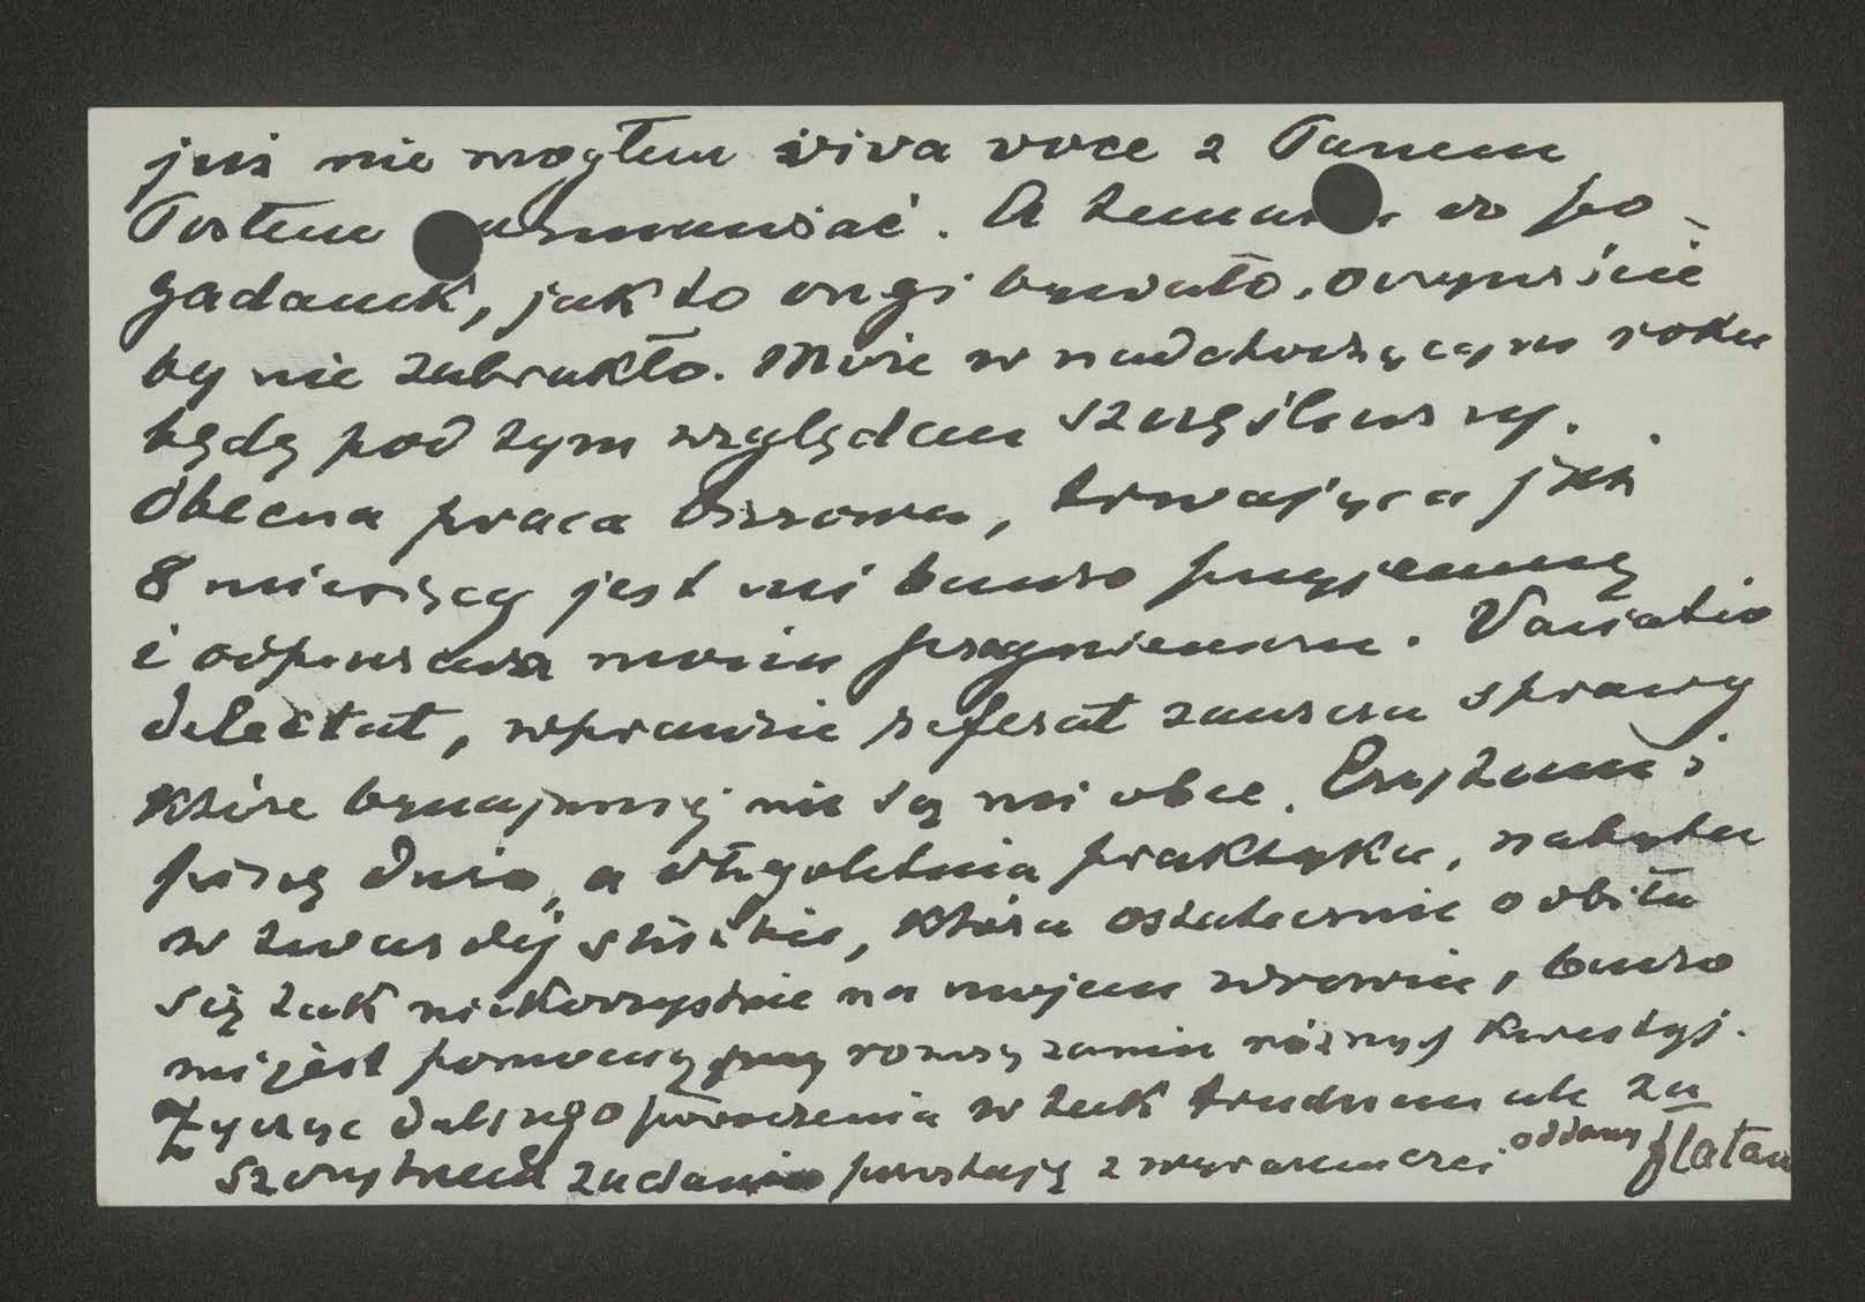 już nie mogłem viva voce z Panem
Posłem rozmawiać. A tematów do po-
gadanek, jak to ongi bywało, oczywiście
by nie zabrakło. Może w nadchodzącym roku
będę pod tym względem szczęśliwszy.
Obecna praca biurowa, trwająca już
8 miesięcy jest mi bardzo przyjemną
i odpowiada moim pragnieniom. Variatio
delectat, wprawdzie referat zawiera sprawy
które bynajmniej nie są mi obce. Czytam i
piszę dużo, a długoletnia praktyka, nabyta
w twardej służbie, która ostatecznie odbiła
się tak niekorzystnie na mojem zdrowiu, bardzo
mi jest pomocną przy rozwiązaniu różnych kwestyj.
Życząc dalszego powodzenia w tak trudnem ale za
szczytnem zadaniu pozostaję z wyrazem czci oddany Flatau